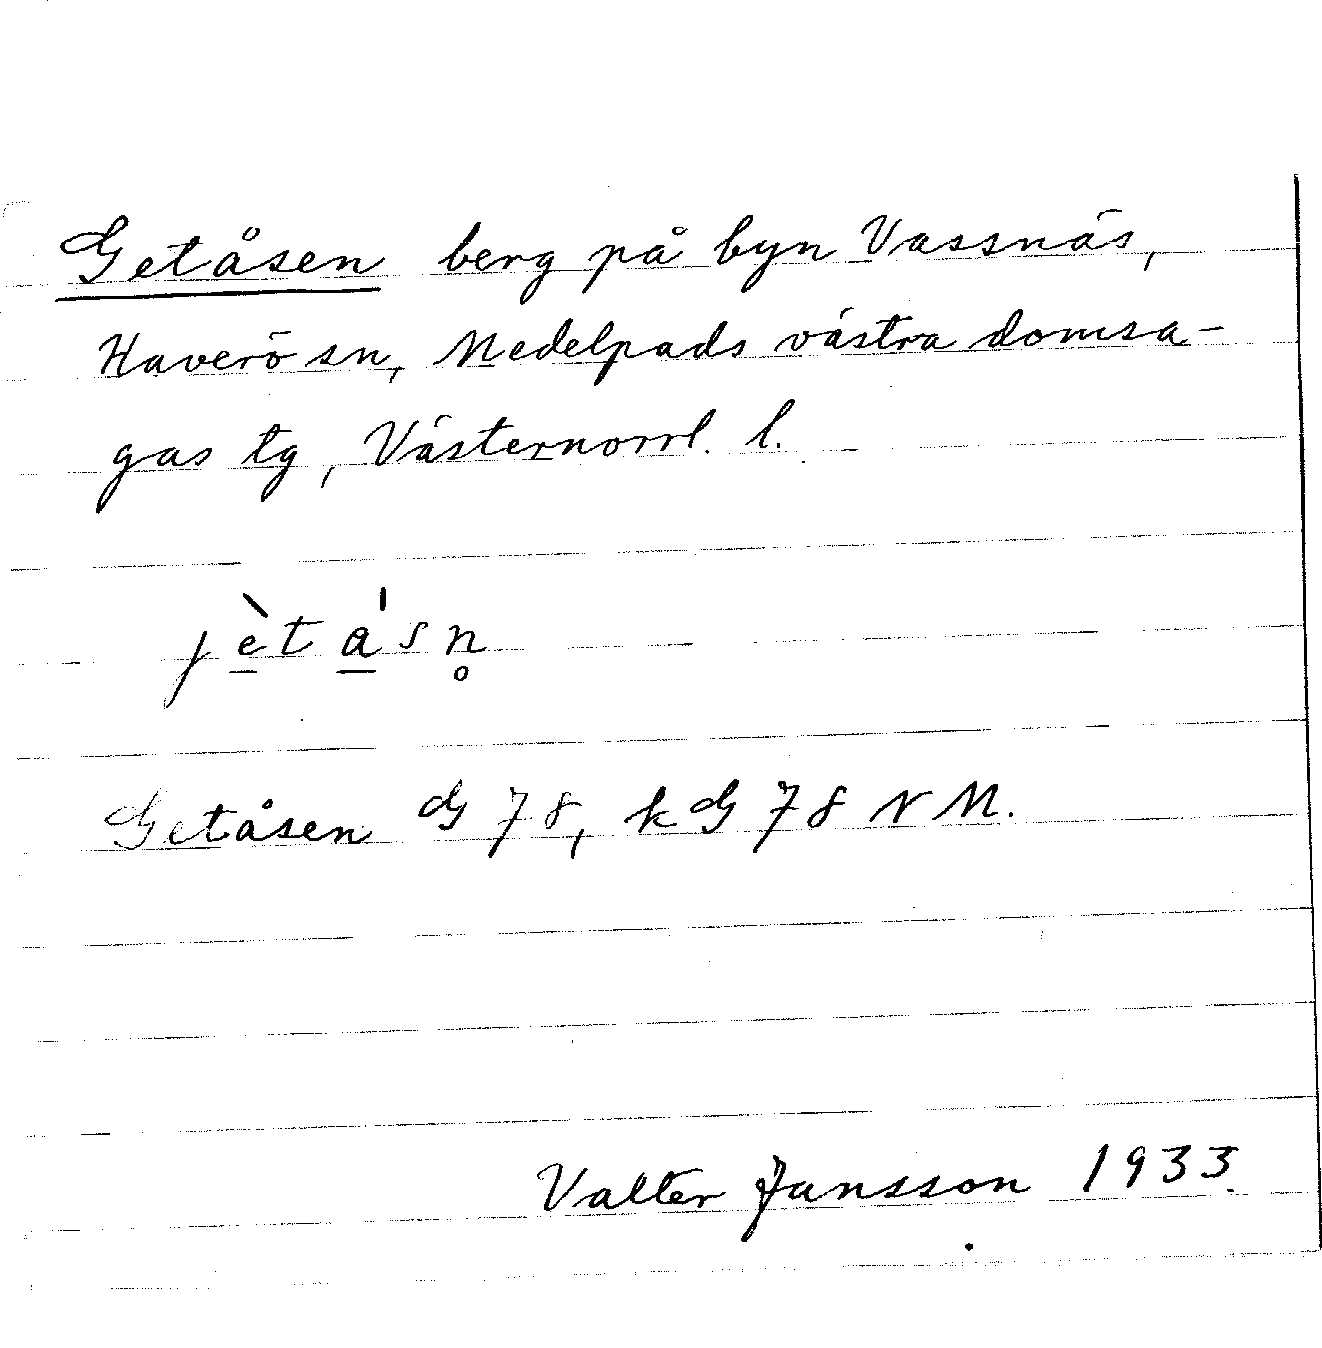 Getåsen berg på byn Vassnäs,
Haverö sn, Medelpads västra domsa-
gas tg, Västernorrl. l.
j è̱ t a̱̍ s n̥
Getåsen G 78, kG 78 NM.
Valter Jansson 1933.